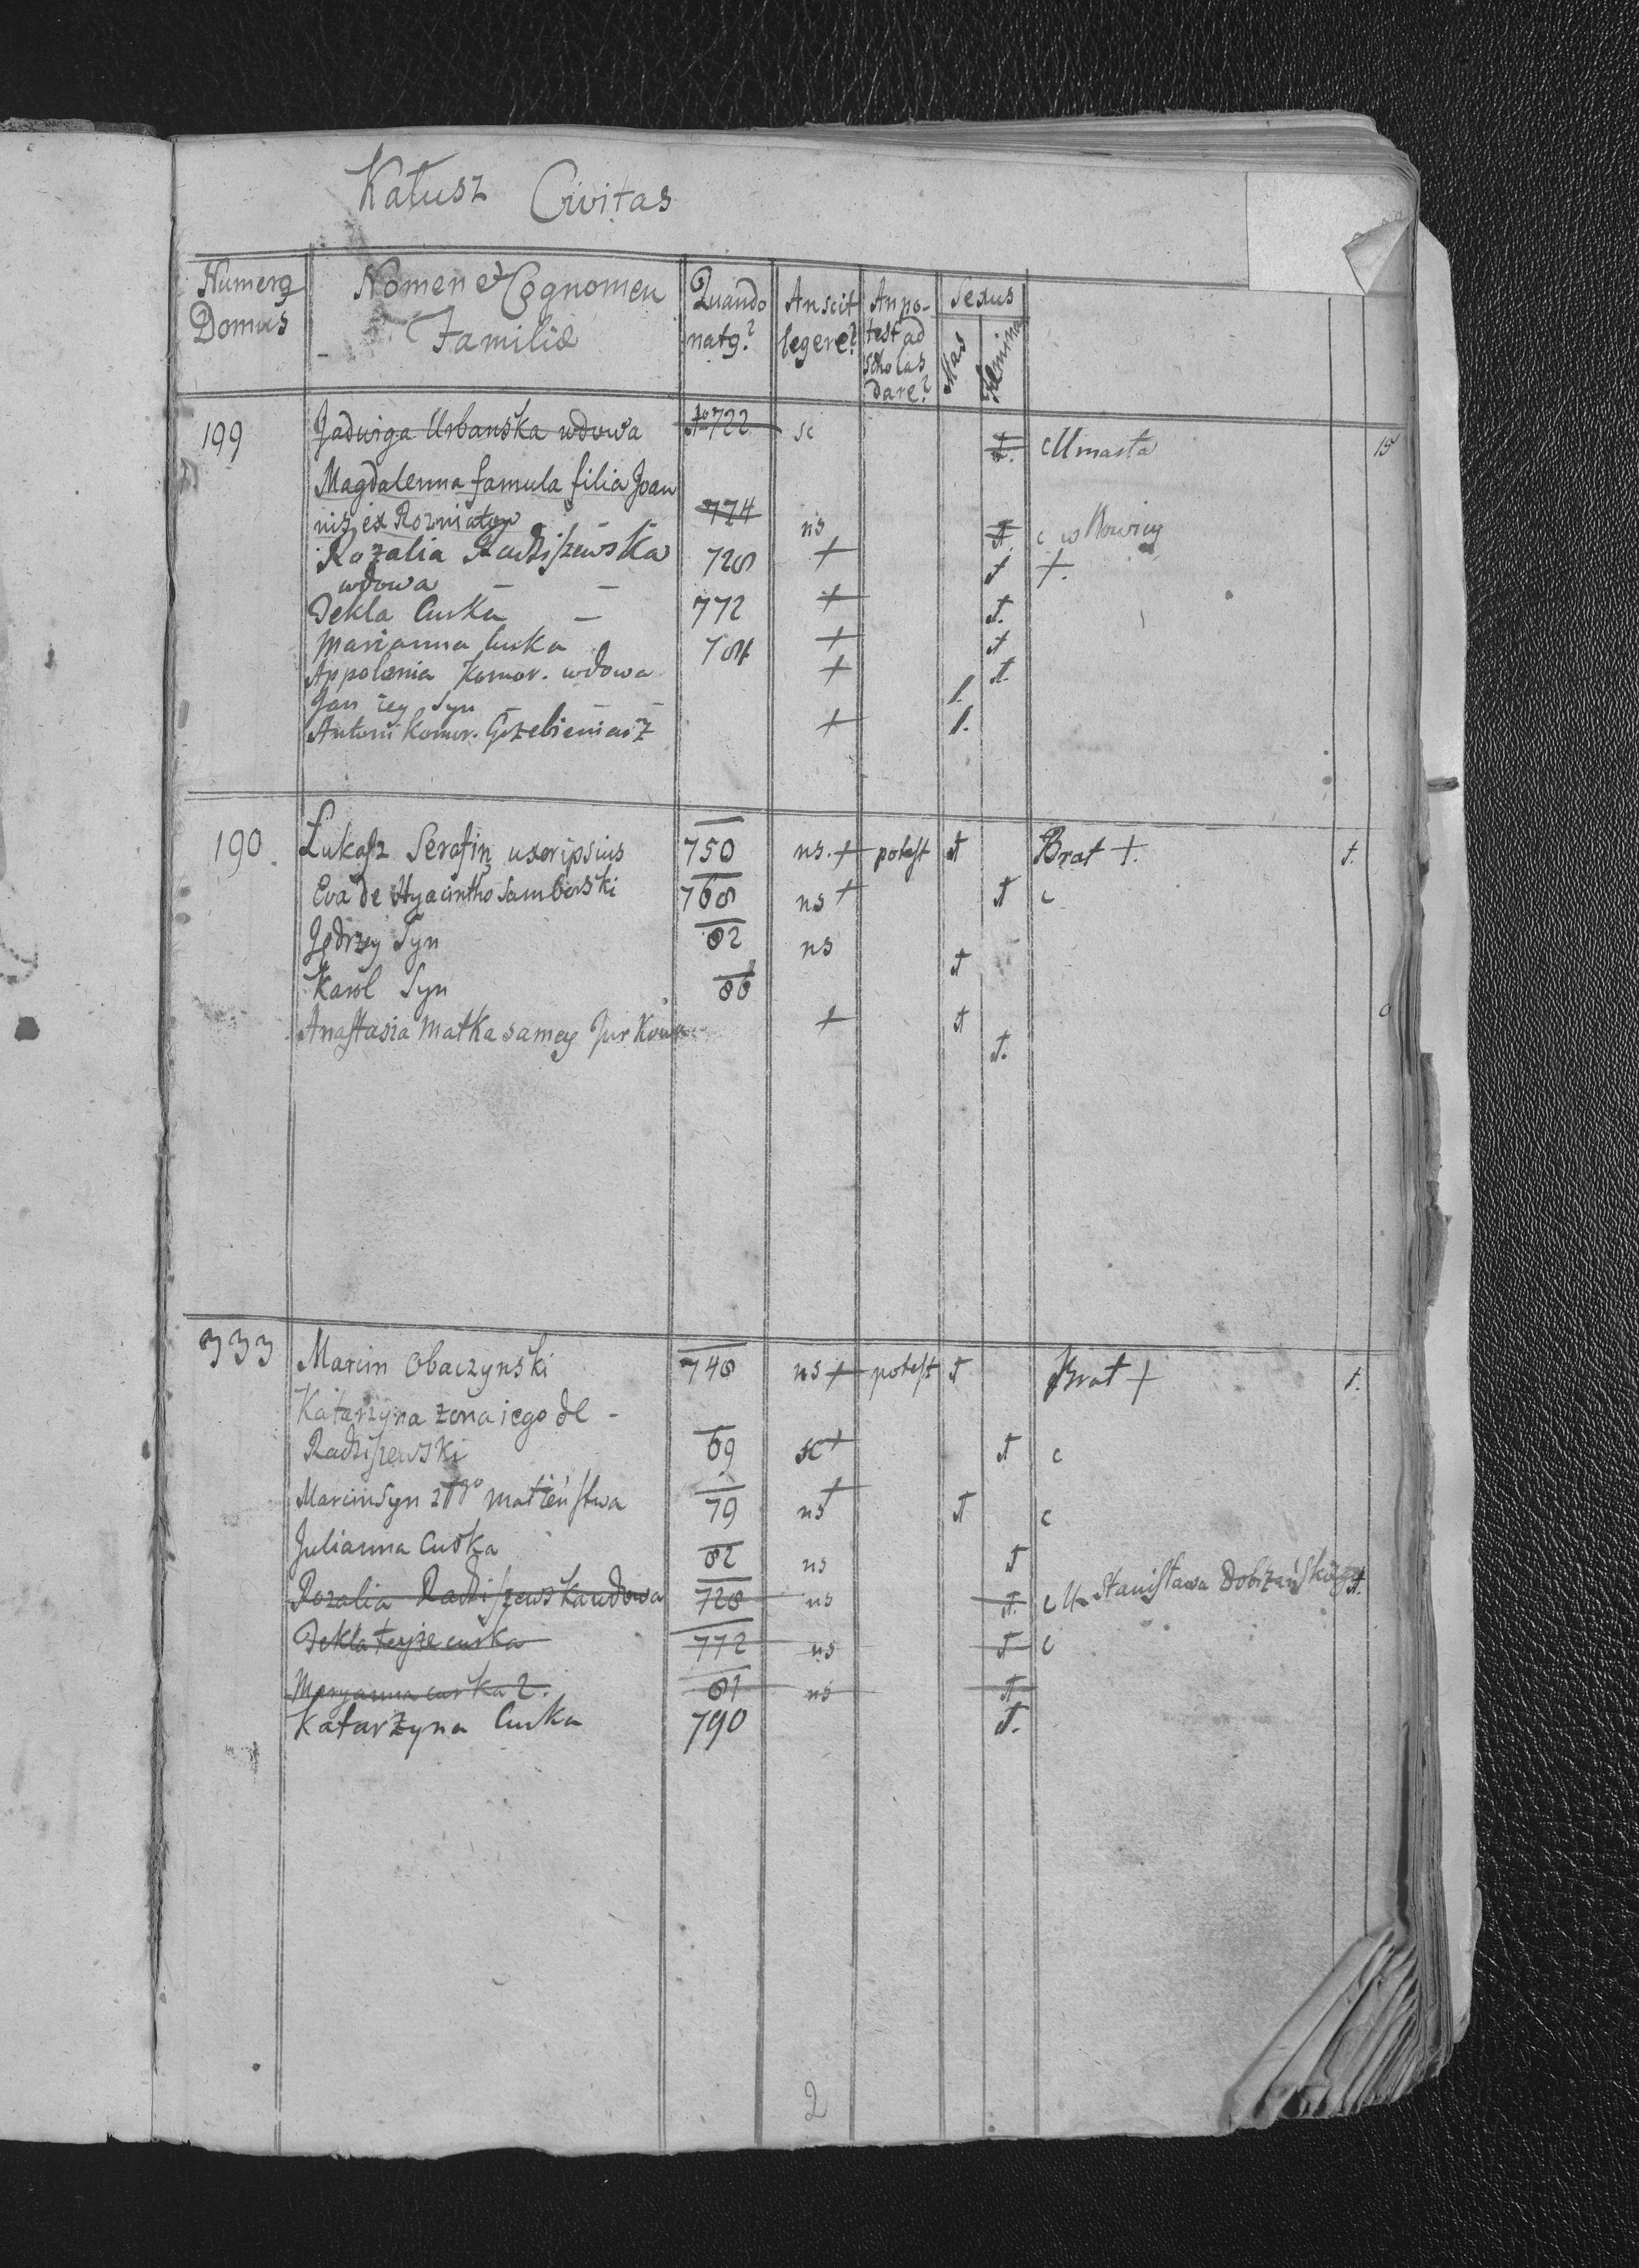 Kałusz Civitas
Numerq Domus
Nomen et Cognomen Familiæ
Quando natq?
An scit legere?
An potest ad scholas dare?
Sexus
Mas
Femina
199 Jadwiga Urbańska wdowa 722 sc t. c Umarła 15
Magdalenna famula filia Joan
nis ex Rozniatow 774 ns t. c w
Rozalia Radziszewska 728 + t +.
wdowa
Tekla Curka 772 + t.
Marianna Curka 784 + t
Appolonia Komor. wdowa + t.
Jan iey Syn 1.
Antoni Komor. Grzebieniarz + 1.
190. Łukasz Serafin uxor ipsius 750 ns. + potest t Brat +. t.
Eva de Hyacintho Samborski 768 ns + t c
Jędrzey Syn 82 ns t
Karol Syn 86 t
Anastasia Matka samey + t.
333 Marcin Obaczynski 748 ns + potest t Brat + t.
Katarzyna zona iego de -
Radziszewski 69 sc + t c
Marcin Syn 2go małżeństwa 79 ns + t c
Julianna Curka 82 ns t
Rozalia Radziszewska wdowa 728 ns t. c U Stanisława Dobrzańskiego t.
Tekla teyże curka 772 ns t c
Maryanna curka 2. 81 ns t
Katarzyna Curka 790 t.
2